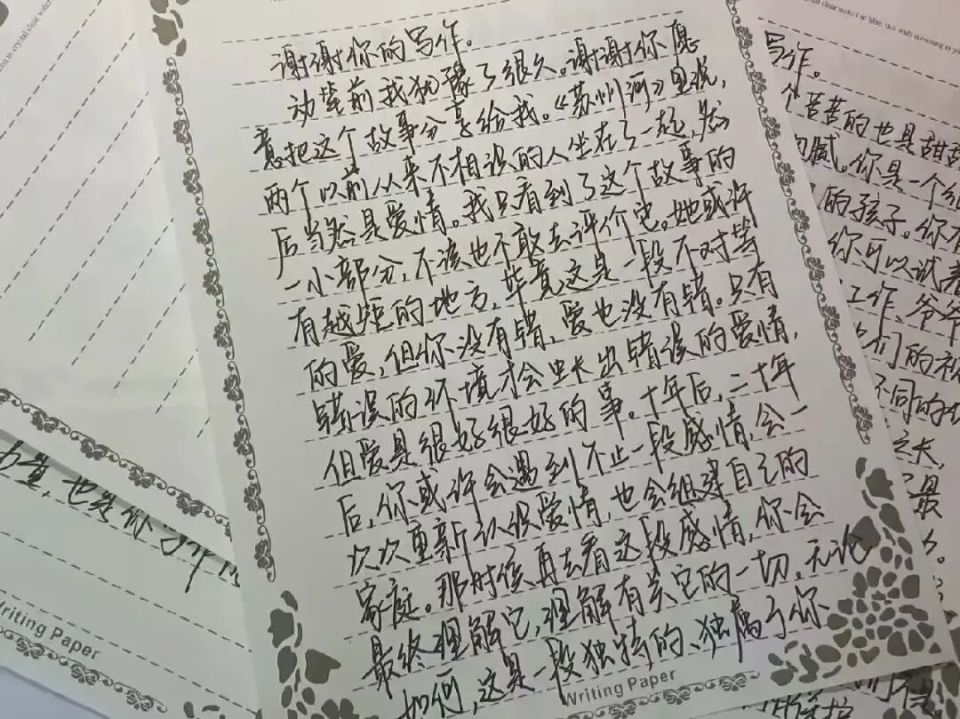 谢谢你的写作。
动笔前我犹豫了很久。谢谢你愿
意把这个故事分享给我。《苏州河》里说,
两个以前从来不相识的人坐在了一起,然
后当然是爱情。我只看到了这个故事的
一小部分,不该也不敢去评价它。她或许
有越矩的地方,毕竟这是一段不对等
的爱,但你没有错,爱也没有错。只有
错误的环境才会生长出错误的爱情,
但爱是很好很好的事。十年后,二十年
后,你或许会遇到不止一段感情,会一
次次重新认识爱情,也会组建自己的
家庭。那时候再去看这段感情,你会
最终理解它,理解有关它的一切。无论
如何,这是一段独特的、独属于你
Writing Paper
写作。
苦苦的也是甜甜
你是一个
的孩子。你有
你可以试着
工作、爷爷
们的祝
不同的
之长,
最
Writing Paper